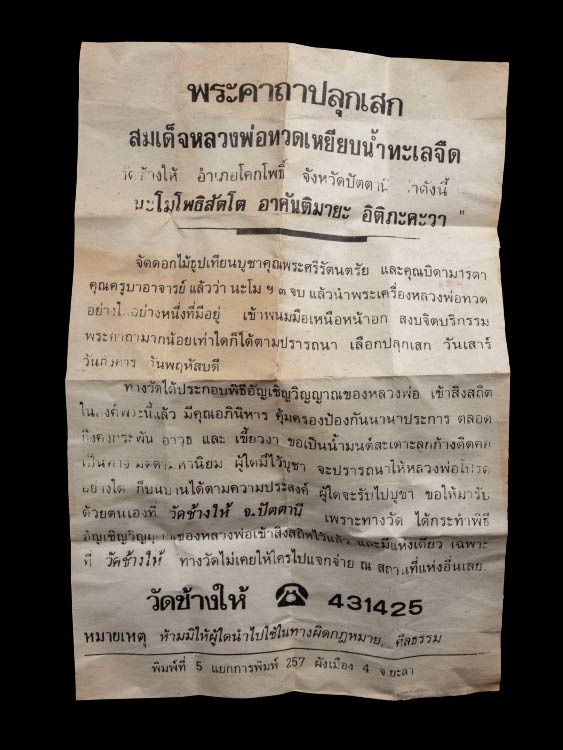 พระคาถาปลุกเสก
สมเด็จหลวงพ่อทวดเหยียบน้ำทะเลจืด
วัดช้างให้ อำเภอโคกโพธิ์ จังหวัดปัตตานี ว่าดังนี้
นะโมโพธิสัตโต อาคันติมายะ อิติภะคะวา "
จัดดอกไม้ธูปเทียนบูชาคุณพระศรีรัตนตรัย และคุณบิดามารดา
คุณครูบาอาจารย์ แล้วว่า นะโม ฯ ๓ จบ แล้วนำพระเครื่องหลวงพ่อทวด
อย่างใดอย่างหนึ่งที่มีอยู่ เข้าพนมมือเหนือหน้าอก สงบจิตบริกรรม
พระคาถามากน้อยเท่าใดก็ได้ตามปรารถนา เลือกปลุกเสก วันเสาร์
วันอังคาร วันพฤหัสบดี
ทางวัดได้ประกอบพิธีอัญเชิญวิญญาณของหลวงพ่อ เข้าสิงสถิต
ในองค์พระนี้แล้ว มีคุณอภินิหาร คุ้มครองป้องกันนานาประการ ตลอด
ถึงคงกระพัน อาวุธ และ เขี้ยวงา ขอเป็นน้ำมนต์สะเดาะลูกก้างติดคอ
เป็นทางเมตตามหานิยม ผู้ใดมีไว้บูชา จะปรารถนาให้หลวงพ่อโปรด
อย่างใด ก็บนบานได้ตามความประสงค์ ผู้ใดจะรับไปบูชา ขอให้มารับ
ด้วยตนเองที่ วัดช้างให้ จ.ปัตตานี เพราะทางวัด ได้กระทำพิธี
อัญเชิญวิญญาณของหลวงพ่อเข้าสิงสถิตไว้แล้ว และมีแห่งเดียว เฉพาะ
ที่ วัดช้างให้ ทางวัดไม่เคยให้ใครไปแจกจ่าย ณ สถานที่แห่งอื่นเลย
วัดช้างให้ ☎ 431425
หมายเหตุ ห้ามมิให้ผู้ใดนำไปใช้ในทางผิดกฎหมาย, ศีลธรรม
พิมพ์ที่ 5 แยกการพิมพ์ 257 ผังเมือง 4 จ.ยะลา